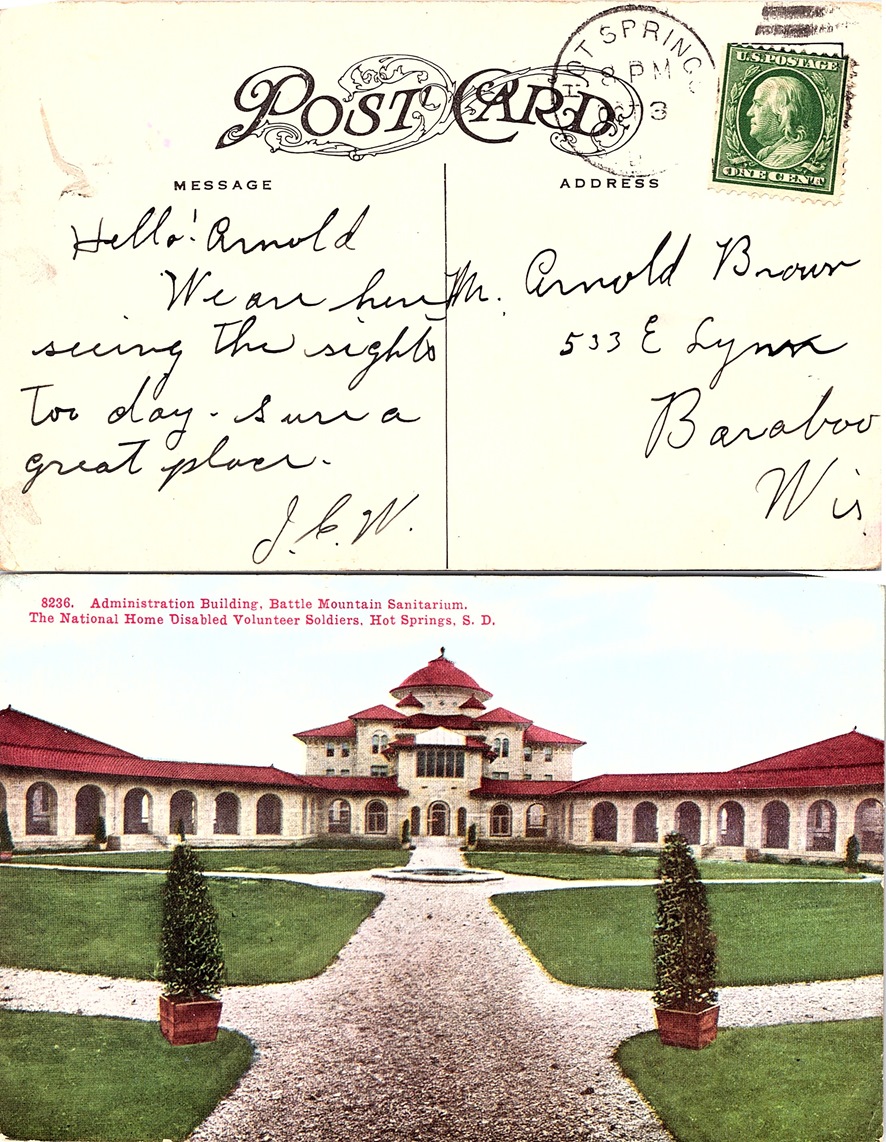 POST CARD
HOT SPRINGS
8 PM
3
U.S. POSTAGE
ONE CENT
MESSAGE
ADDRESS
Hello! Arnold
We are here
seeing the sights
too day - sure a
great place.
J.C.W.
Mr. Arnold Brown
533 E Lynn
Baraboo
Wis
8236. Administration Building, Battle Mountain Sanitarium.
The National Home Disabled Volunteer Soldiers, Hot Springs, S. D.